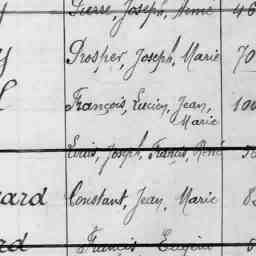 Pierre, Joseph, Aimé 46
Prosper, Joseph, Marie 70
François, Lucien, Jean,
Marie
Louis, Joseph, Francis, René
ard Constant, Jean, Marie
rd Francis Eugène